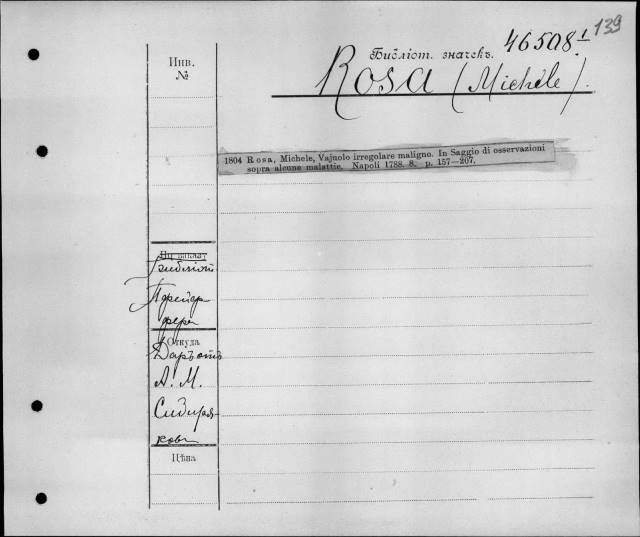 139
46508¹
Инв.
№
Библіот. значекъ.
Rosa (Michele).
1804 Rosa, Michele, Vajuolo irregolare maligno. In Saggio di osservazioni
sopra alcune malattie. Napoli 1788. 8. p. 157—207.
Библіот
Откуда
Даръ отъ
А. М.
Сибиря-
кова
Цѣна